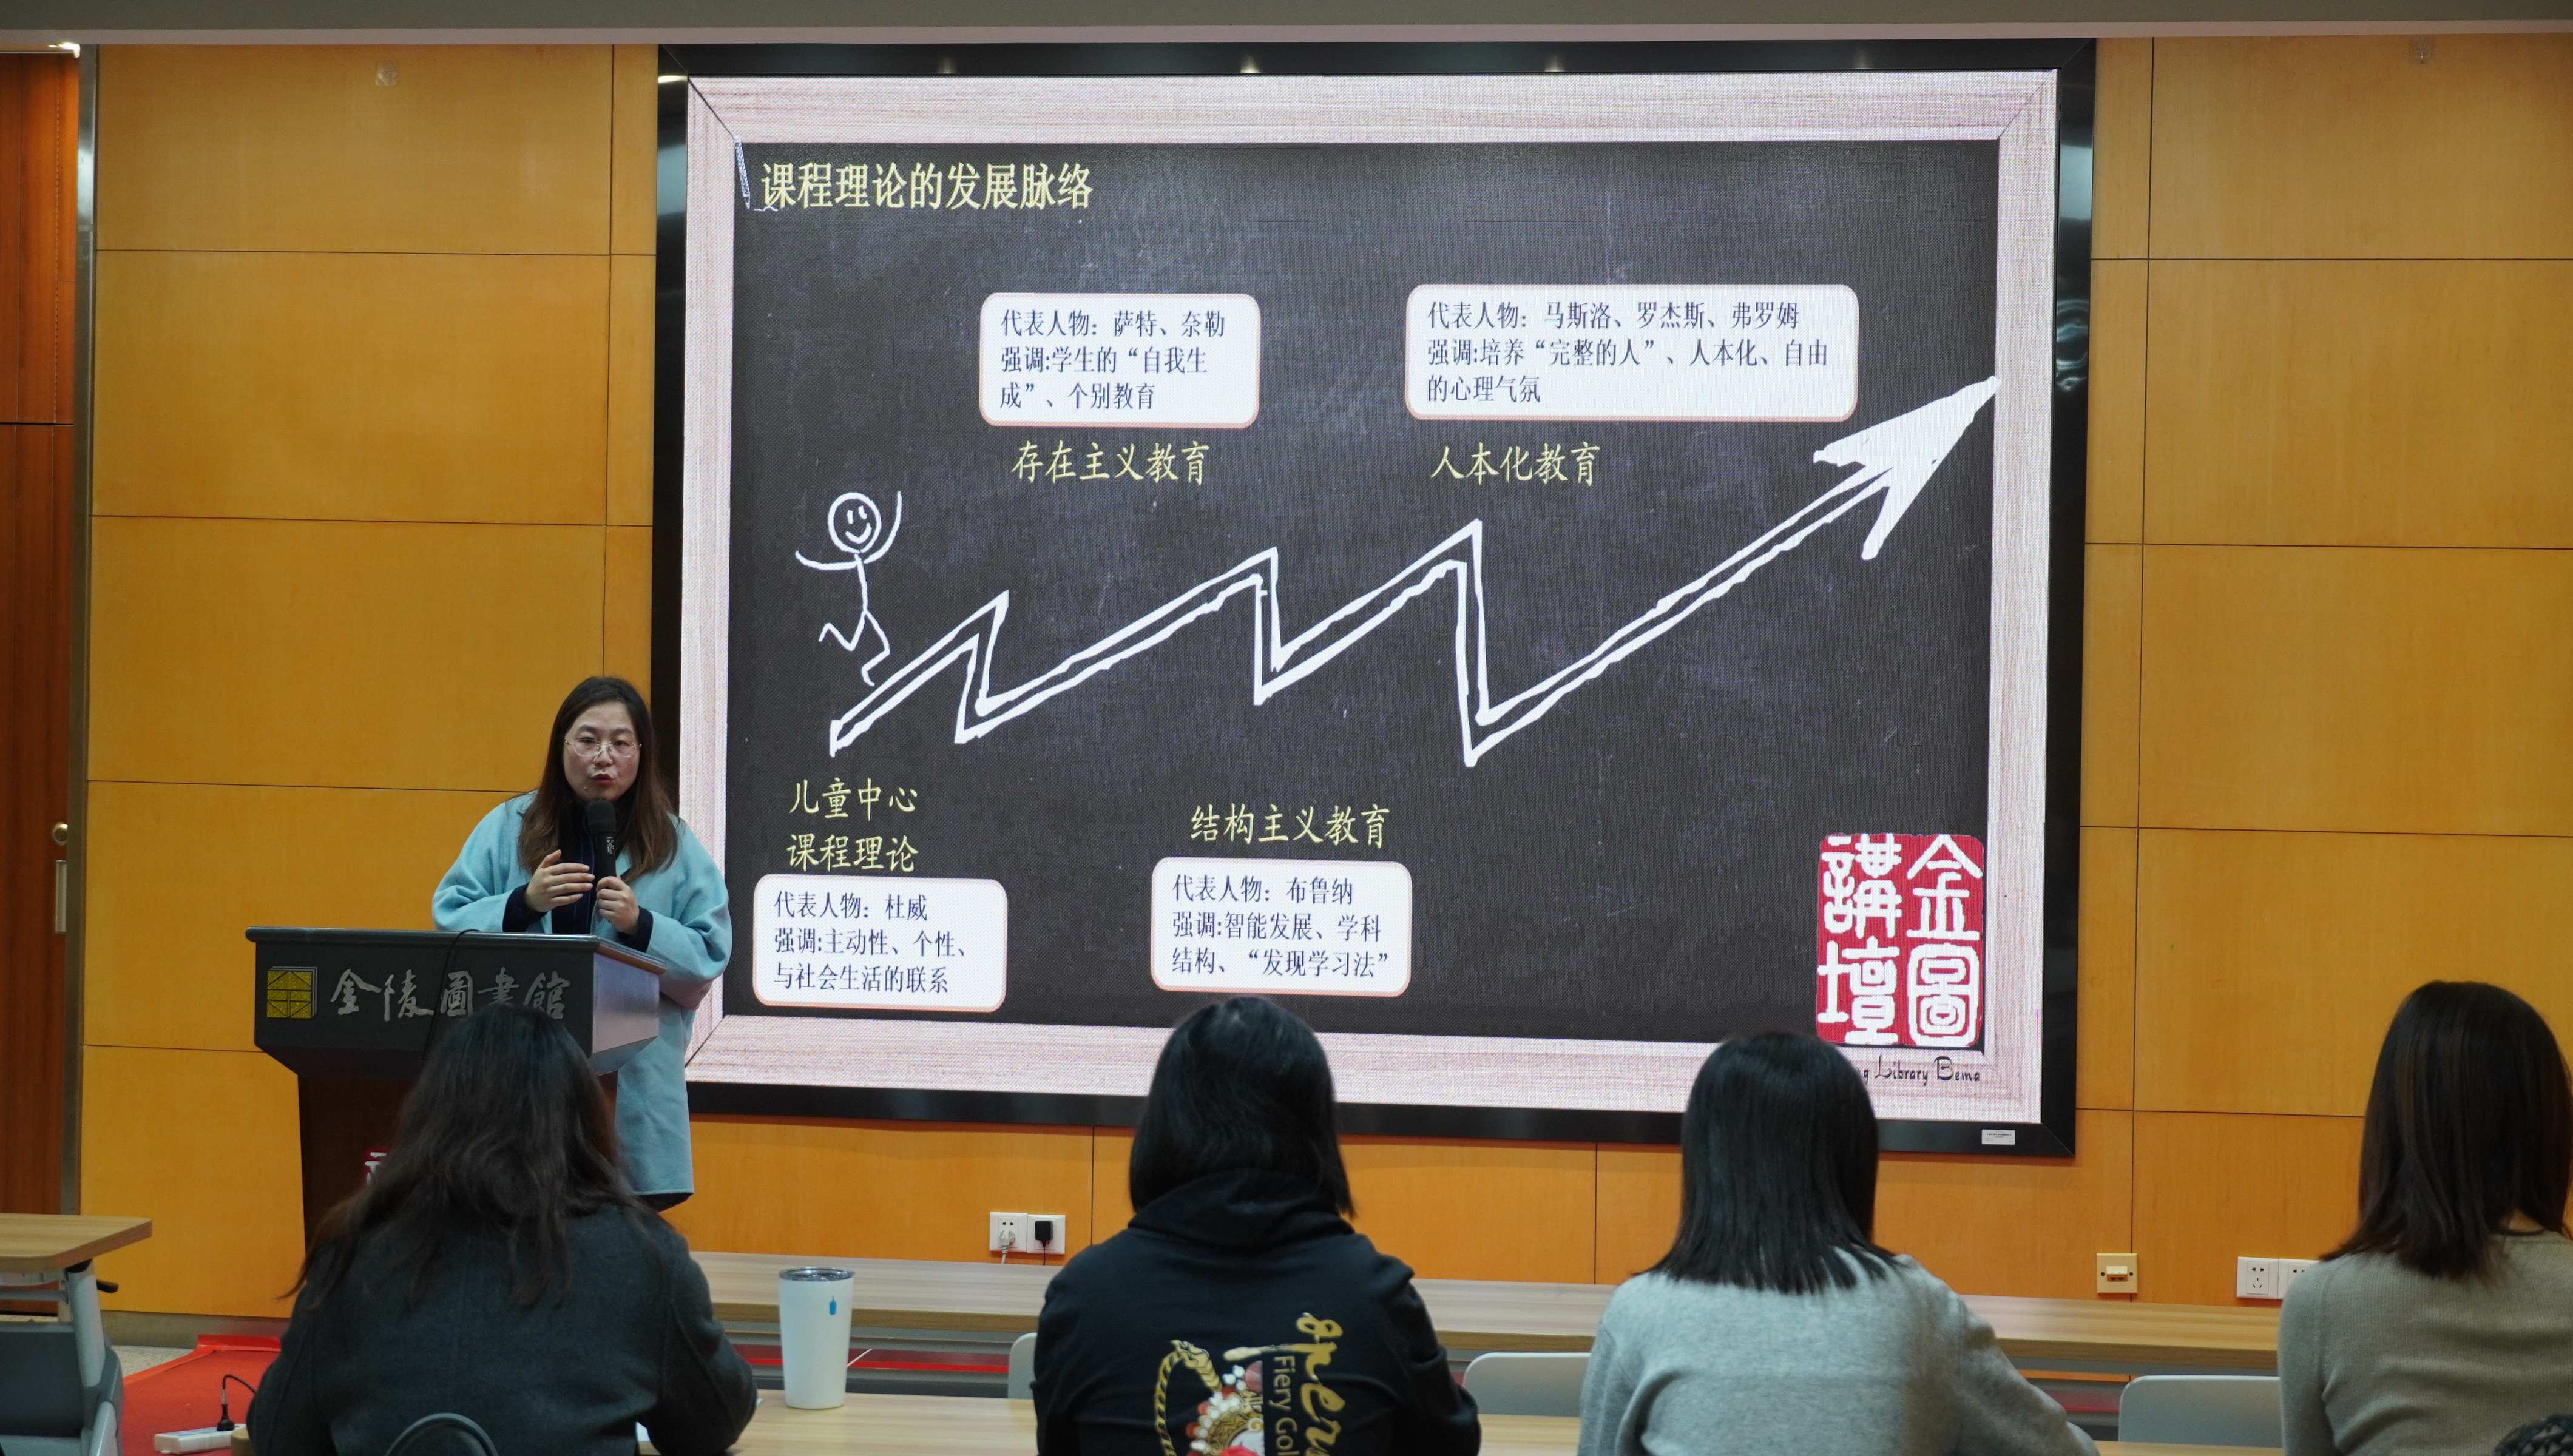 课程理论的发展脉络
代表人物：萨特、奈勒
强调:学生的“自我生
成”、个别教育
存在主义教育
代表人物：马斯洛、罗杰斯、弗罗姆
强调:培养“完整的人”、人本化、自由
的心理气氛
人本化教育
儿童中心
课程理论
代表人物：杜威
强调:主动性、个性、
与社会生活的联系
结构主义教育
代表人物：布鲁纳
强调:智能发展、学科
结构、“发现学习法”
金圖
講壇
Library Bema
金陵圖書館
Fiery